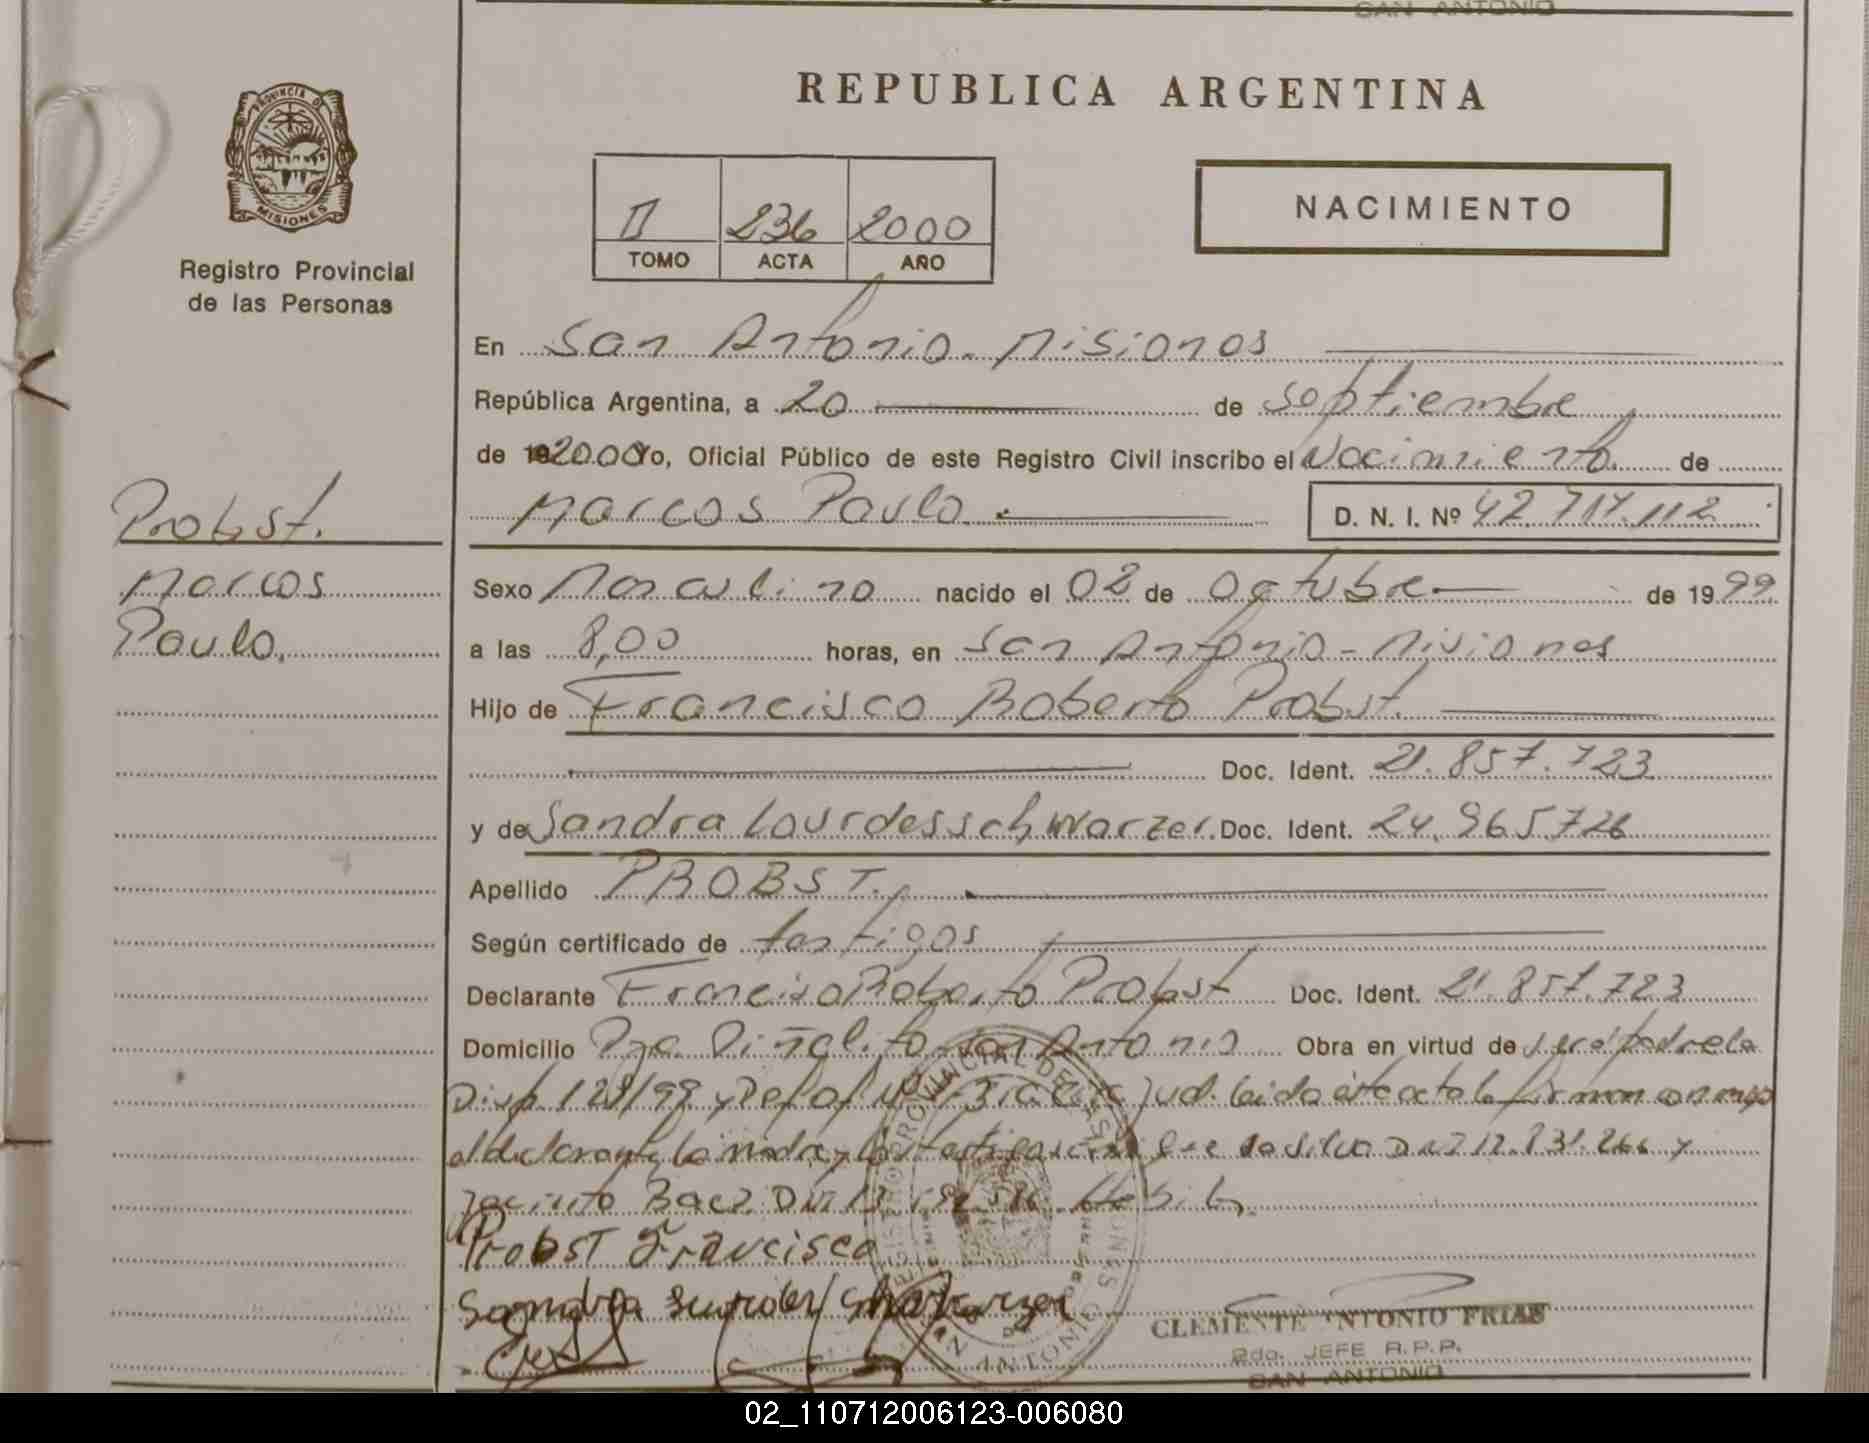 SAN ANTONIO
REPUBLICA ARGENTINA
PROVINCIA DE
MISIONES
Registro Provincial
de las Personas
II 236 2000
TOMO ACTA AÑO
NACIMIENTO
En San Antonio. Misiones
República Argentina, a 20 de septiembre
de 192000 Yo, Oficial Público de este Registro Civil inscribo el Nacimiento de
Marcos Paulo D. N. I. Nº 42.717.112
Probst.
Marcos
Paulo.
Sexo Masculino nacido el 02 de Octubre de 1999
a las 8,00 horas, en San Antonio - Misiones
Hijo de Francisco Roberto Probst.
Doc. Ident. 21.857.723
y de Sandra Lourdes Schwarzer. Doc. Ident. 24.965.726
Apellido PROBST.
Según certificado de testigos
Declarante Francisco Roberto Probst Doc. Ident. 21.857.723
Domicilio Pje. Piñalito San Antonio Obra en virtud de ser el padre la
Disp 128/99 y Jud. leida este acta la firman conmigo
el declarante, la madre y los testigos da Silva DNI 12.831.266 y
Jacinto Baez DNI 13
Probst Francisco
Sandra Schwarzer
CLEMENTE ANTONIO FRIAS
2do. JEFE R.P.P.
SAN ANTONIO
02_110712006123-006080